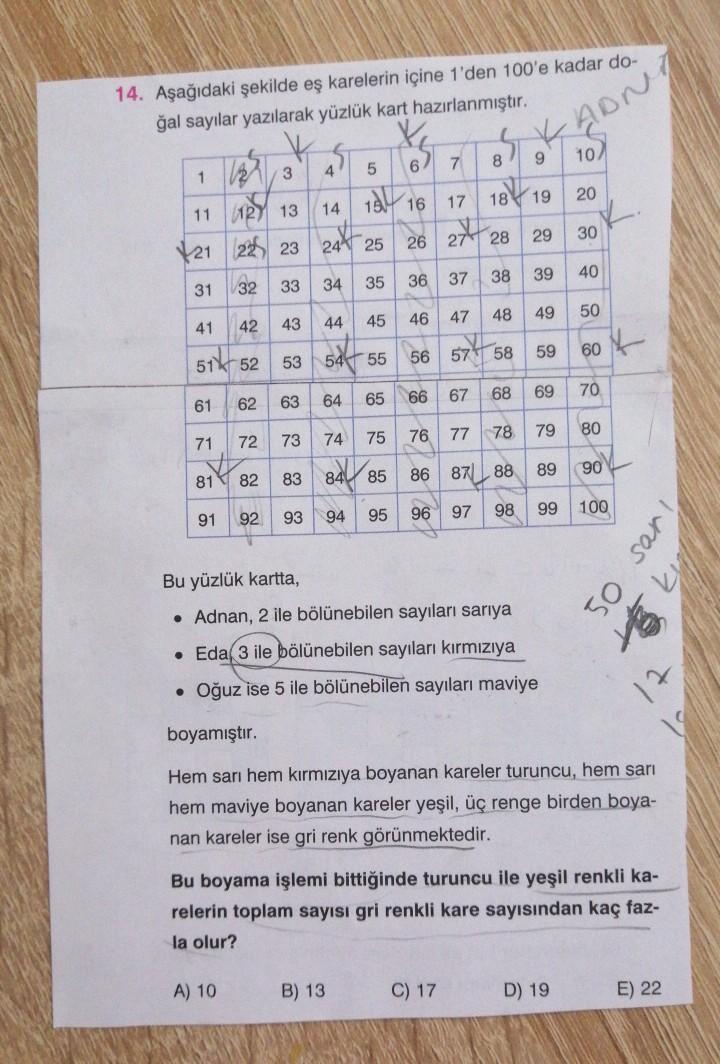 14. Aşağıdaki şekilde eş karelerin içine 1'den 100'e kadar do-
ğal sayılar yazılarak yüzlük kart hazırlanmıştır.
ADN
1 2 3 4 5 6 7 8 9 10
11 12 13 14 15 16 17 18 19 20
21 22 23 24 25 26 27 28 29 30
31 32 33 34 35 36 37 38 39 40
41 42 43 44 45 46 47 48 49 50
51 52 53 54 55 56 57 58 59 60
61 62 63 64 65 66 67 68 69 70
71 72 73 74 75 76 77 78 79 80
81 82 83 84 85 86 87 88 89 90
91 92 93 94 95 96 97 98 99 100
Bu yüzlük kartta,
• Adnan, 2 ile bölünebilen sayıları sarıya
• Eda 3 ile bölünebilen sayıları kırmızıya
• Oğuz ise 5 ile bölünebilen sayıları maviye
boyamıştır.
50 sarı
17
Hem sarı hem kırmızıya boyanan kareler turuncu, hem sarı
hem maviye boyanan kareler yeşil, üç renge birden boya-
nan kareler ise gri renk görünmektedir.
Bu boyama işlemi bittiğinde turuncu ile yeşil renkli ka-
relerin toplam sayısı gri renkli kare sayısından kaç faz-
la olur?
A) 10 B) 13 C) 17 D) 19 E) 22